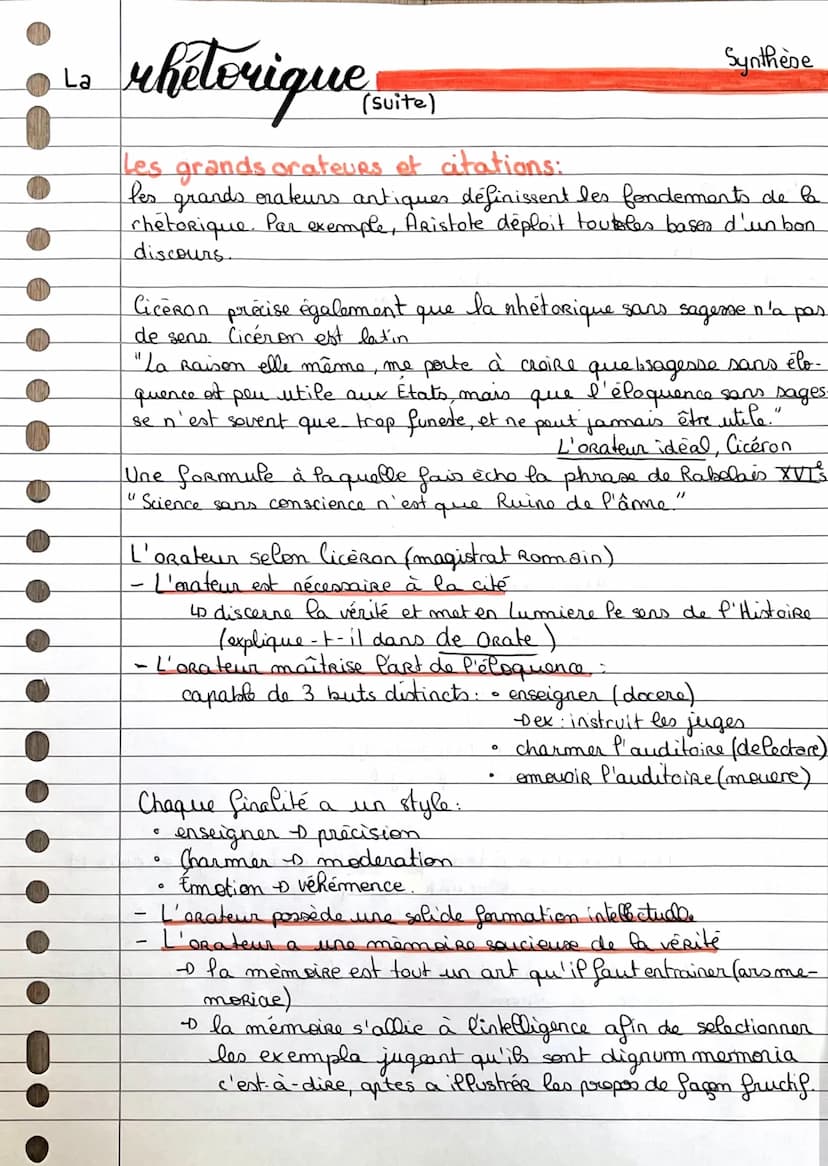 Synthèse
La rhétorique
(suite)
Les grands orateurs et citations:
les grands orateurs antiques définissent les fondements de la
rhétorique. Par exemple, Aristote déploit toutes les bases d'un bon
discours.
Cicéron précise également que la rhétorique sans sagesse n'a pas
de sens. Cicéron est latin
"La Raison elle même, me porte à croire que la sagesse sans élo-
quence est peu utile aux États, mais que l'éloquence sans sages-
se n'est sovent que trop funeste, et ne peut jamais être utile."
L'orateur idéal, Cicéron
Une formule à laquelle fais écho la phrase de Rabelais XVIe s
"Science sans conscience n'est que Ruine de l'âme."
L'orateur selon Cicéron (magistrat Romain)
- L'orateur est nécessaire à la cité
↳ discerne la vérité et met en lumiere le sens de l'Histoire
(explique-t-il dans de orate)
- L'orateur maîtrise l'art de l'éloquence :
capable de 3 buts distincts: • enseigner (docere)
→ ex : instruit les juges
• charmer l'auditoire (delectare)
• emouoir l'auditoire (mouere)
Chaque finalité a un style:
• enseigner → précision
• Charmer → moderation
• Émotion → véhémence.
- L'orateur possède une solide formation intellectuelle
- L'orateur a une mémoire soucieuse de la vérité
→ la mémoire est tout un art qu'il faut entrainer (ars me-
moriae)
→ la mémoire s'allie à l'intelligence afin de selectionner
les exempla jugeant qu'ils sont dignum memoria
c'est-à-dire, aptes a illustrér les propos de façon fructif.